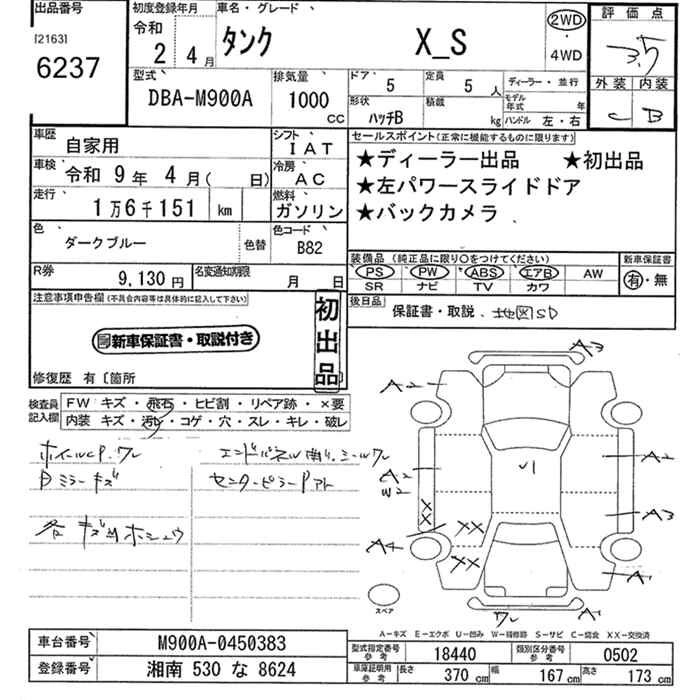 出品番号
[2163]
6237
初度登録年月
令和
2 4月
車名・グレード
タンク X_S
2WD
・
4WD
評価点
3.5
外装 内装
C B
型式
DBA-M900A
排気量
1000
CC
ドア
5
定員
5 人
形状
ハッチB
積載
kg
ディーラー・並行
モデル年式 年
ハンドル 左・右
車歴
自家用
シフト
IAT
車検
令和 9年 4月( 日)
冷房
AC
走行
1万6千151 km
燃料
ガソリン
色
ダークブルー
色替
色コード
B82
R券
9,130円
名変通知期限
月 日
セールスポイント(正常に機能するものに限ります)
★ディーラー出品 ★初出品
★左パワースライドドア
★バックカメラ
装備品(純正品に限り○をつけてください)
PS PW ABS エアB AW
SR ナビ TV カワ
新車保証書
有・無
後日品
保証書・取説、地図SD
注意事項申告欄(不具合内容等は具体的に記入して下さい)
新車保証書・取説付き
初出品
修復歴 有〔箇所
検査員
記入欄
FW キズ・飛石・ヒビ割・リペア跡・×要
内装 キズ・汚レ・コゲ・穴・スレ・キレ・破レ
ホイールCP.ワレ
エンドパネル
シールワレ
ミラーキズ
センターピラーPアト
各キズ
ホシュウ
A3
A2
A2
W2
A4
U1
A2
A3
A1
A1
ワレ
XX
XX
X
X
スペア
A−キズ E−エクボ U−凹み W−補修跡 S−サビ C−腐食 XX−交換済
車台番号
M900A-0450383
登録番号
湘南 530 な 8624
型式指定番号
参考
18440
類別区分番号
参考
0502
車庫証明用
参考
長さ 370 cm 幅 167 cm 高さ 173 cm